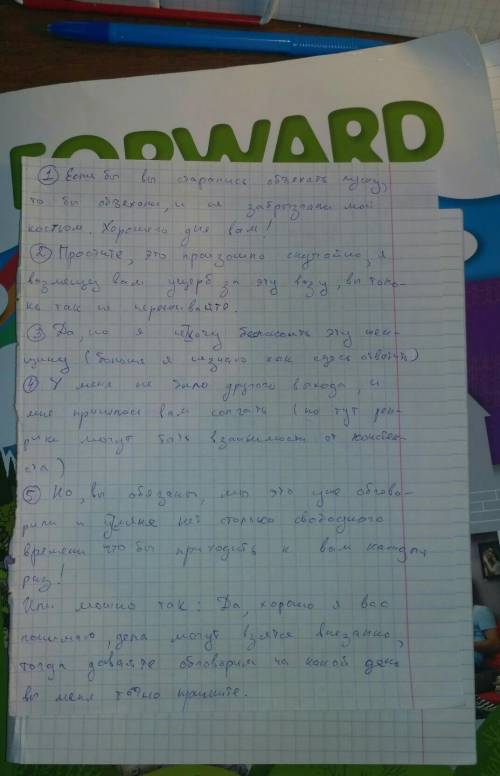 FORWARD
① Если бы вы старались объехать лужу,
то бы объехали, и не забрызгали мой
костюм. Хорошего дня вам!
② Простите, это произошло случайно, я
возмещу вам ущерб за эту вазу, вы толь-
ко так не переживайте.
③ Да, но я не хочу беспокоить эту жен-
щину (больше я не знаю как здесь ответить)
④ У меня не было другого выхода, и
мне пришлось вам солгать (но тут
могут быть взависимости от контек-
ста)
⑤ Но, вы обязаны, мы это уже обгово-
рили и у меня нет столько свободного
времени что бы приходить к вам каждый
раз!
Или можно так: Да, хорошо я вас
понимаю, дела могут взятся внезапно,
тогда давайте обговорим на какой день
вы меня точно примите.